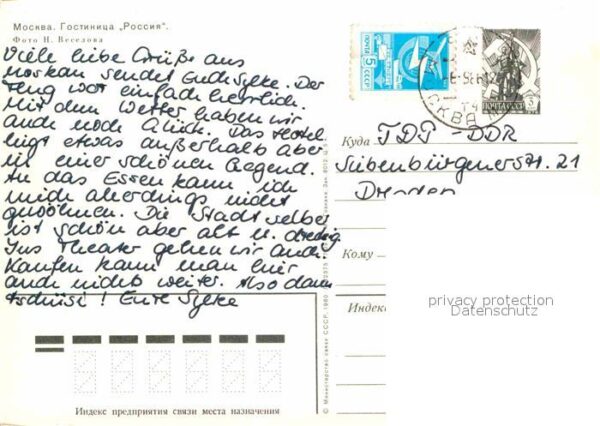 Москва. Гостиница „Россия".
Фото Н. Веселова
Viele liebe Grüße aus
Moskau sendet Euch Sylke. Der
Flug war einfach herrlich.
Mit dem Wetter haben wir
auch noch Glück. Das Hotel
liegt etwas außerhalb aber
in einer schönen Gegend.
An das Essen kann ich
mich allerdings nicht
gewöhnen. Die Stadt selber
ist schön aber alt u. dreckig.
Ins Theater gehen wir auch.
Kaufen kann man hier
auch nichts weiter. Also dann
tschüsi! Eure Sylke
ПОЧТА СССР
5
МОСКВА
ПОЧТА СССР
Куда TDJ - DDR
Siebenbürgener Str. 21
Dresden
Кому
Индекс
privacy protection
Datenschutz
© Министерство связи СССР. 1980
Индекс предприятия связи места назначения